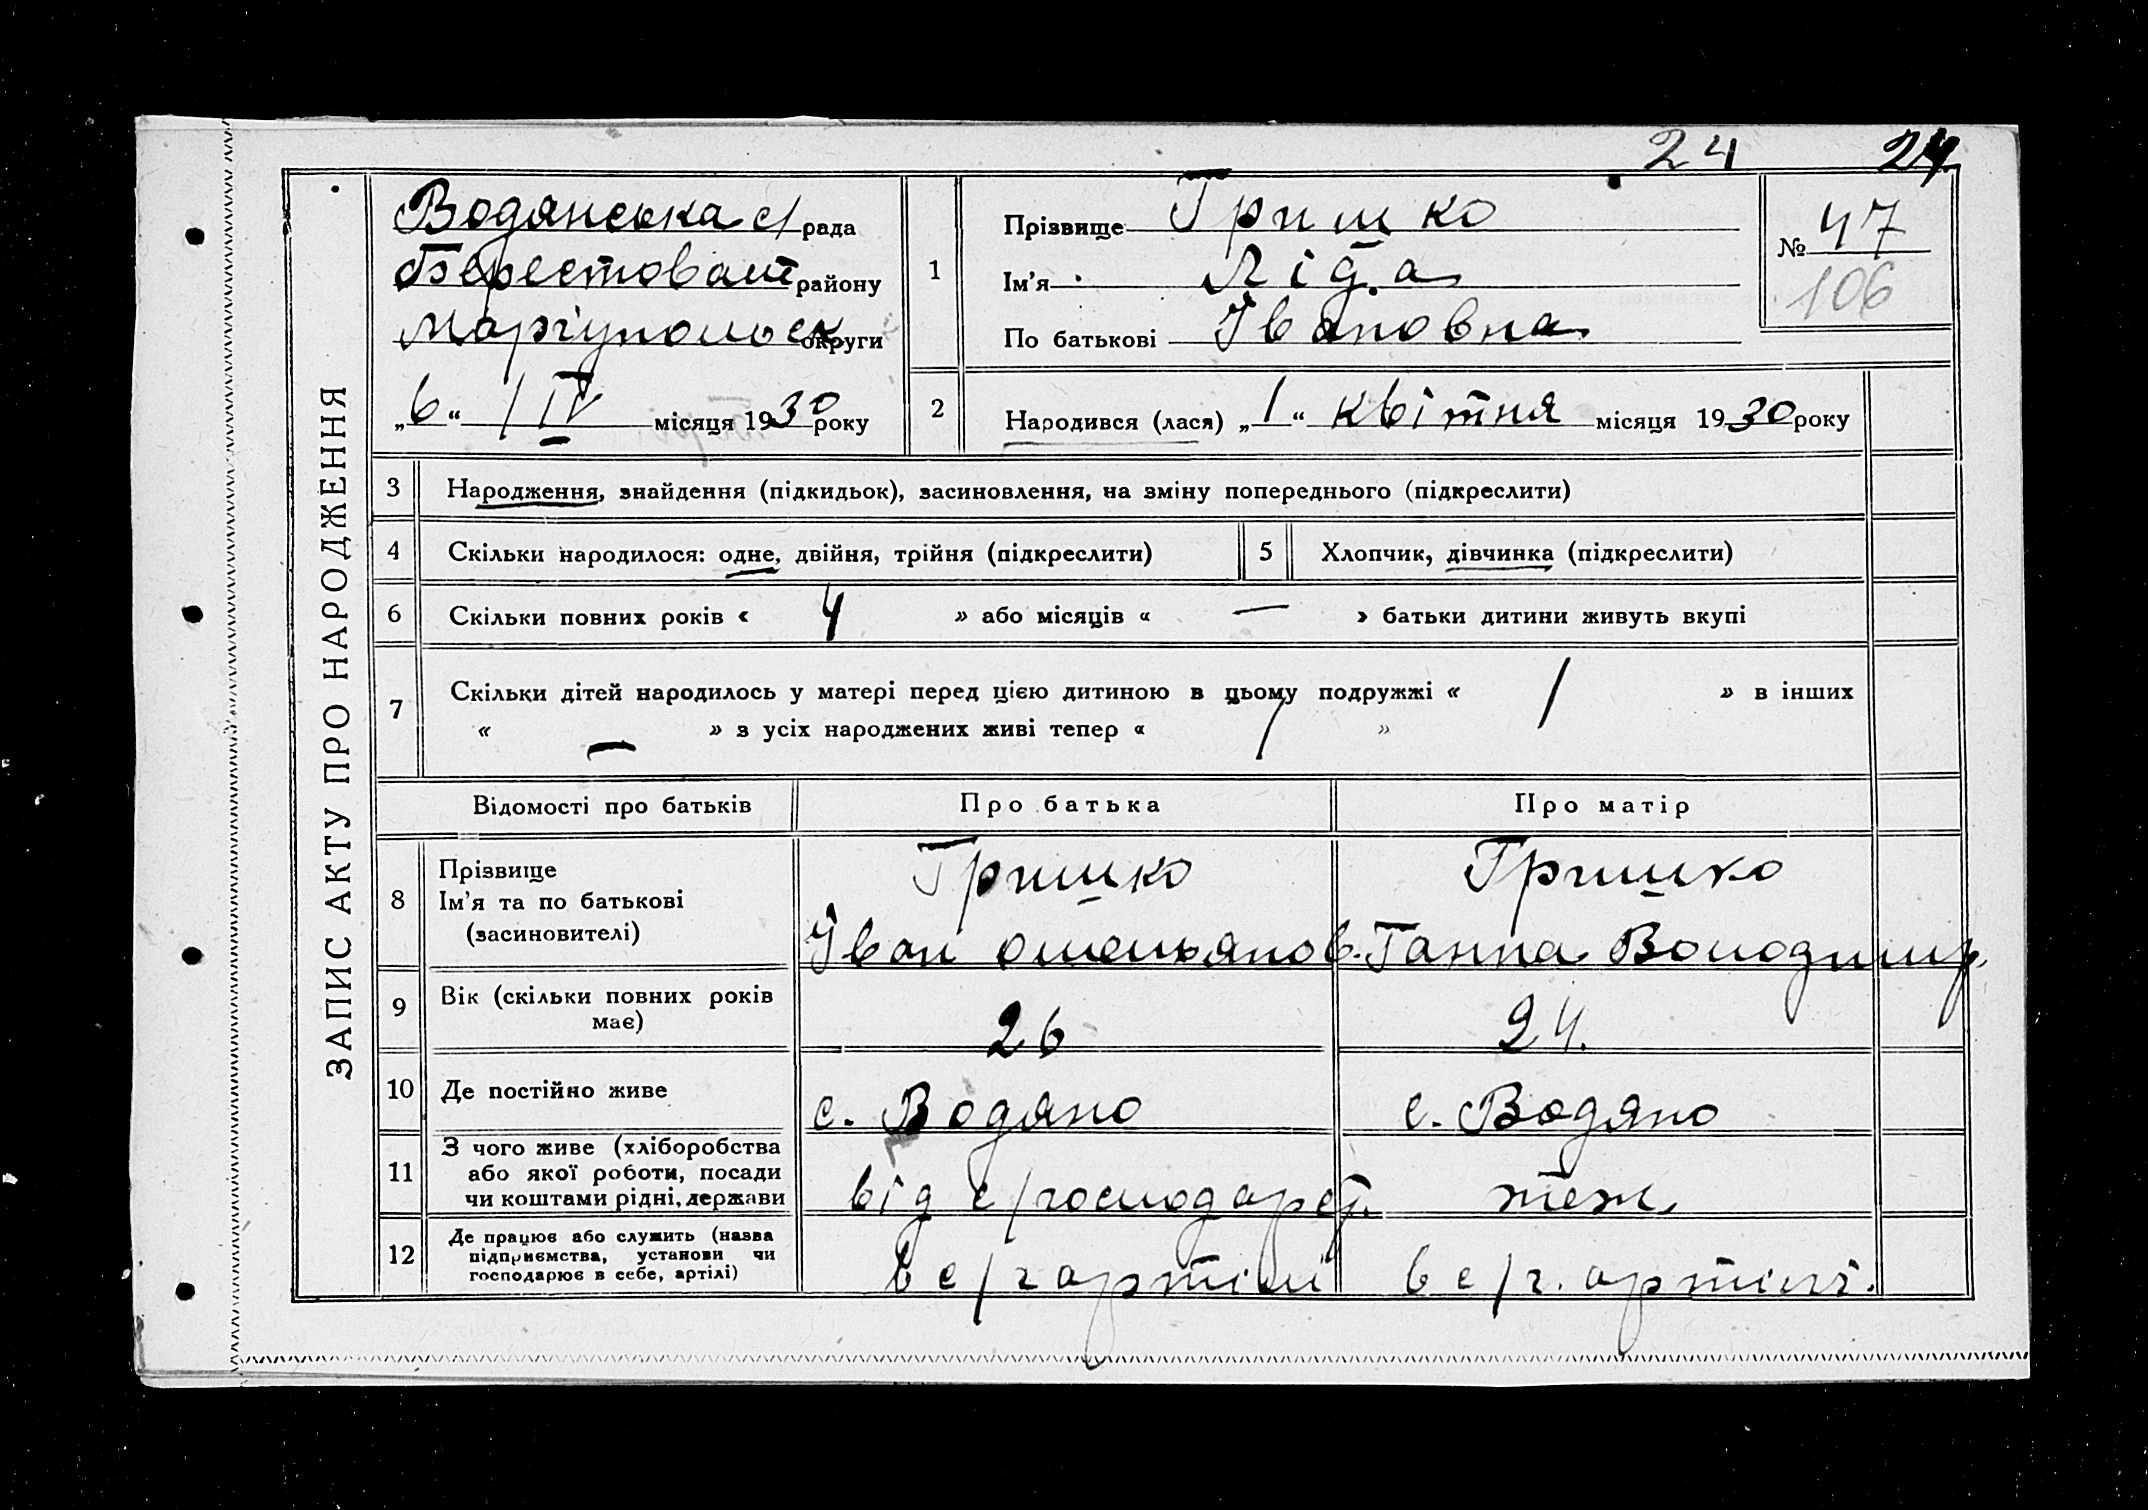 24 24
ЗАПИС АКТУ ПРО НАРОДЖЕННЯ
Водянська с/рада
Берестоват району
Маріупольськ округи
„6“ /IV місяця 1930 року
1
Прізвище Гришко
Ім’я Ліда
По батькові Івановна
№ 47
106
2
Народився (лася) „1“ квітня місяця 1930 року
3 Народження, знайдення (підкидьок), засиновлення, на зміну попереднього (підкреслити)
4 Скільки народилося: одне, двійня, трійня (підкреслити) 5 Хлопчик, дівчинка (підкреслити)
6 Скільки повних років « 4 » або місяців « — » батьки дитини живуть вкупі
7 Скільки дітей народилось у матері перед цією дитиною в цьому подружжі « 1 » в інших
« — » з усіх народжених живі тепер « 1 »
Відомості про батьків Про батька Про матір
8 Прізвище
Ім’я та по батькові
(засновителі)
Гришко
Іван Омельянов.
Гришко
Ганна Володимир.
9 Вік (скільки повних років
має)
26
24.
10 Де постійно живе с. Водяно с. Водяно
11 З чого живе (хліборобства
або якої роботи, посади
чи коштами рідні, держави
від с/господарст. теж
12 Де працює або служить (назва
підприємства, установи чи
господарює в себе, артілі)
в с/г артілі в с/г. артілі.